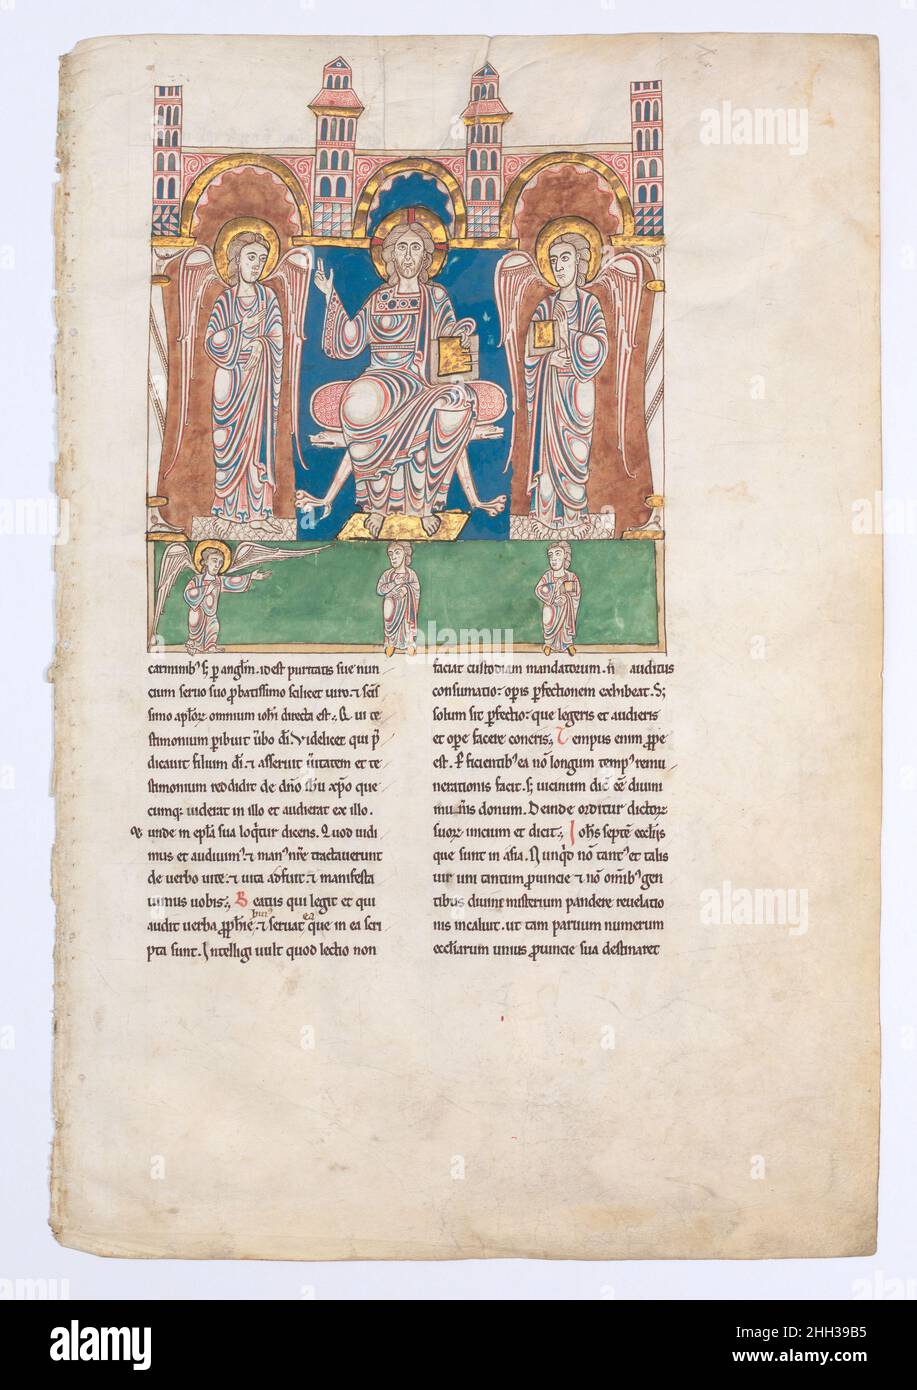 carminib' s; p angl'm. id est puritatis sue nun
cium seruo suo p batissimo scilicet uiro. & scis
simo aplor omnium iohi directa est; Qui te
stimonium pibuit ubo di. Videlicet qui p
dicauit filium di. & asseruit uitatem et te
stimonium reddidit de dno ihu xpo que
cumq; uiderat in illo et audierat ex illo.
unde in epla sua loqtur dicens. Quod uidi
mus et audiuim' & man' nre tractauerunt
de verbo uite. & uita adfuit & manifesta
uimus uobis; Beatus qui legit et qui
audit uerba pphie & seruat que in ea scri
pta sunt. Intelligi uult quod lectio non
faciat custodiam mandatorum. n auditus
consumatio. opis pfectionem exhibeat. S;
solum sit pfectio. que legeris et audieris
et ope facere coneris; Tempus enim prope
est. Pficientib' ea non longum temp' remu
nerationis facit. s; uicinum die ee diuini
muneris donum. Deinde orditur dictor
suor inicium et dicit; Iohs septe ecclis
que sunt in asia. Nunqd non tant' et talis
uir uni tantum puincie & no omib' gen
tibus diuine misterium pandere reuelatio
nis incaluit. ut tam paruum numerum
eccliarum unius puincie sua destinaret
alamy
alamy
Image ID: 2HH39B5
www.alamy.com